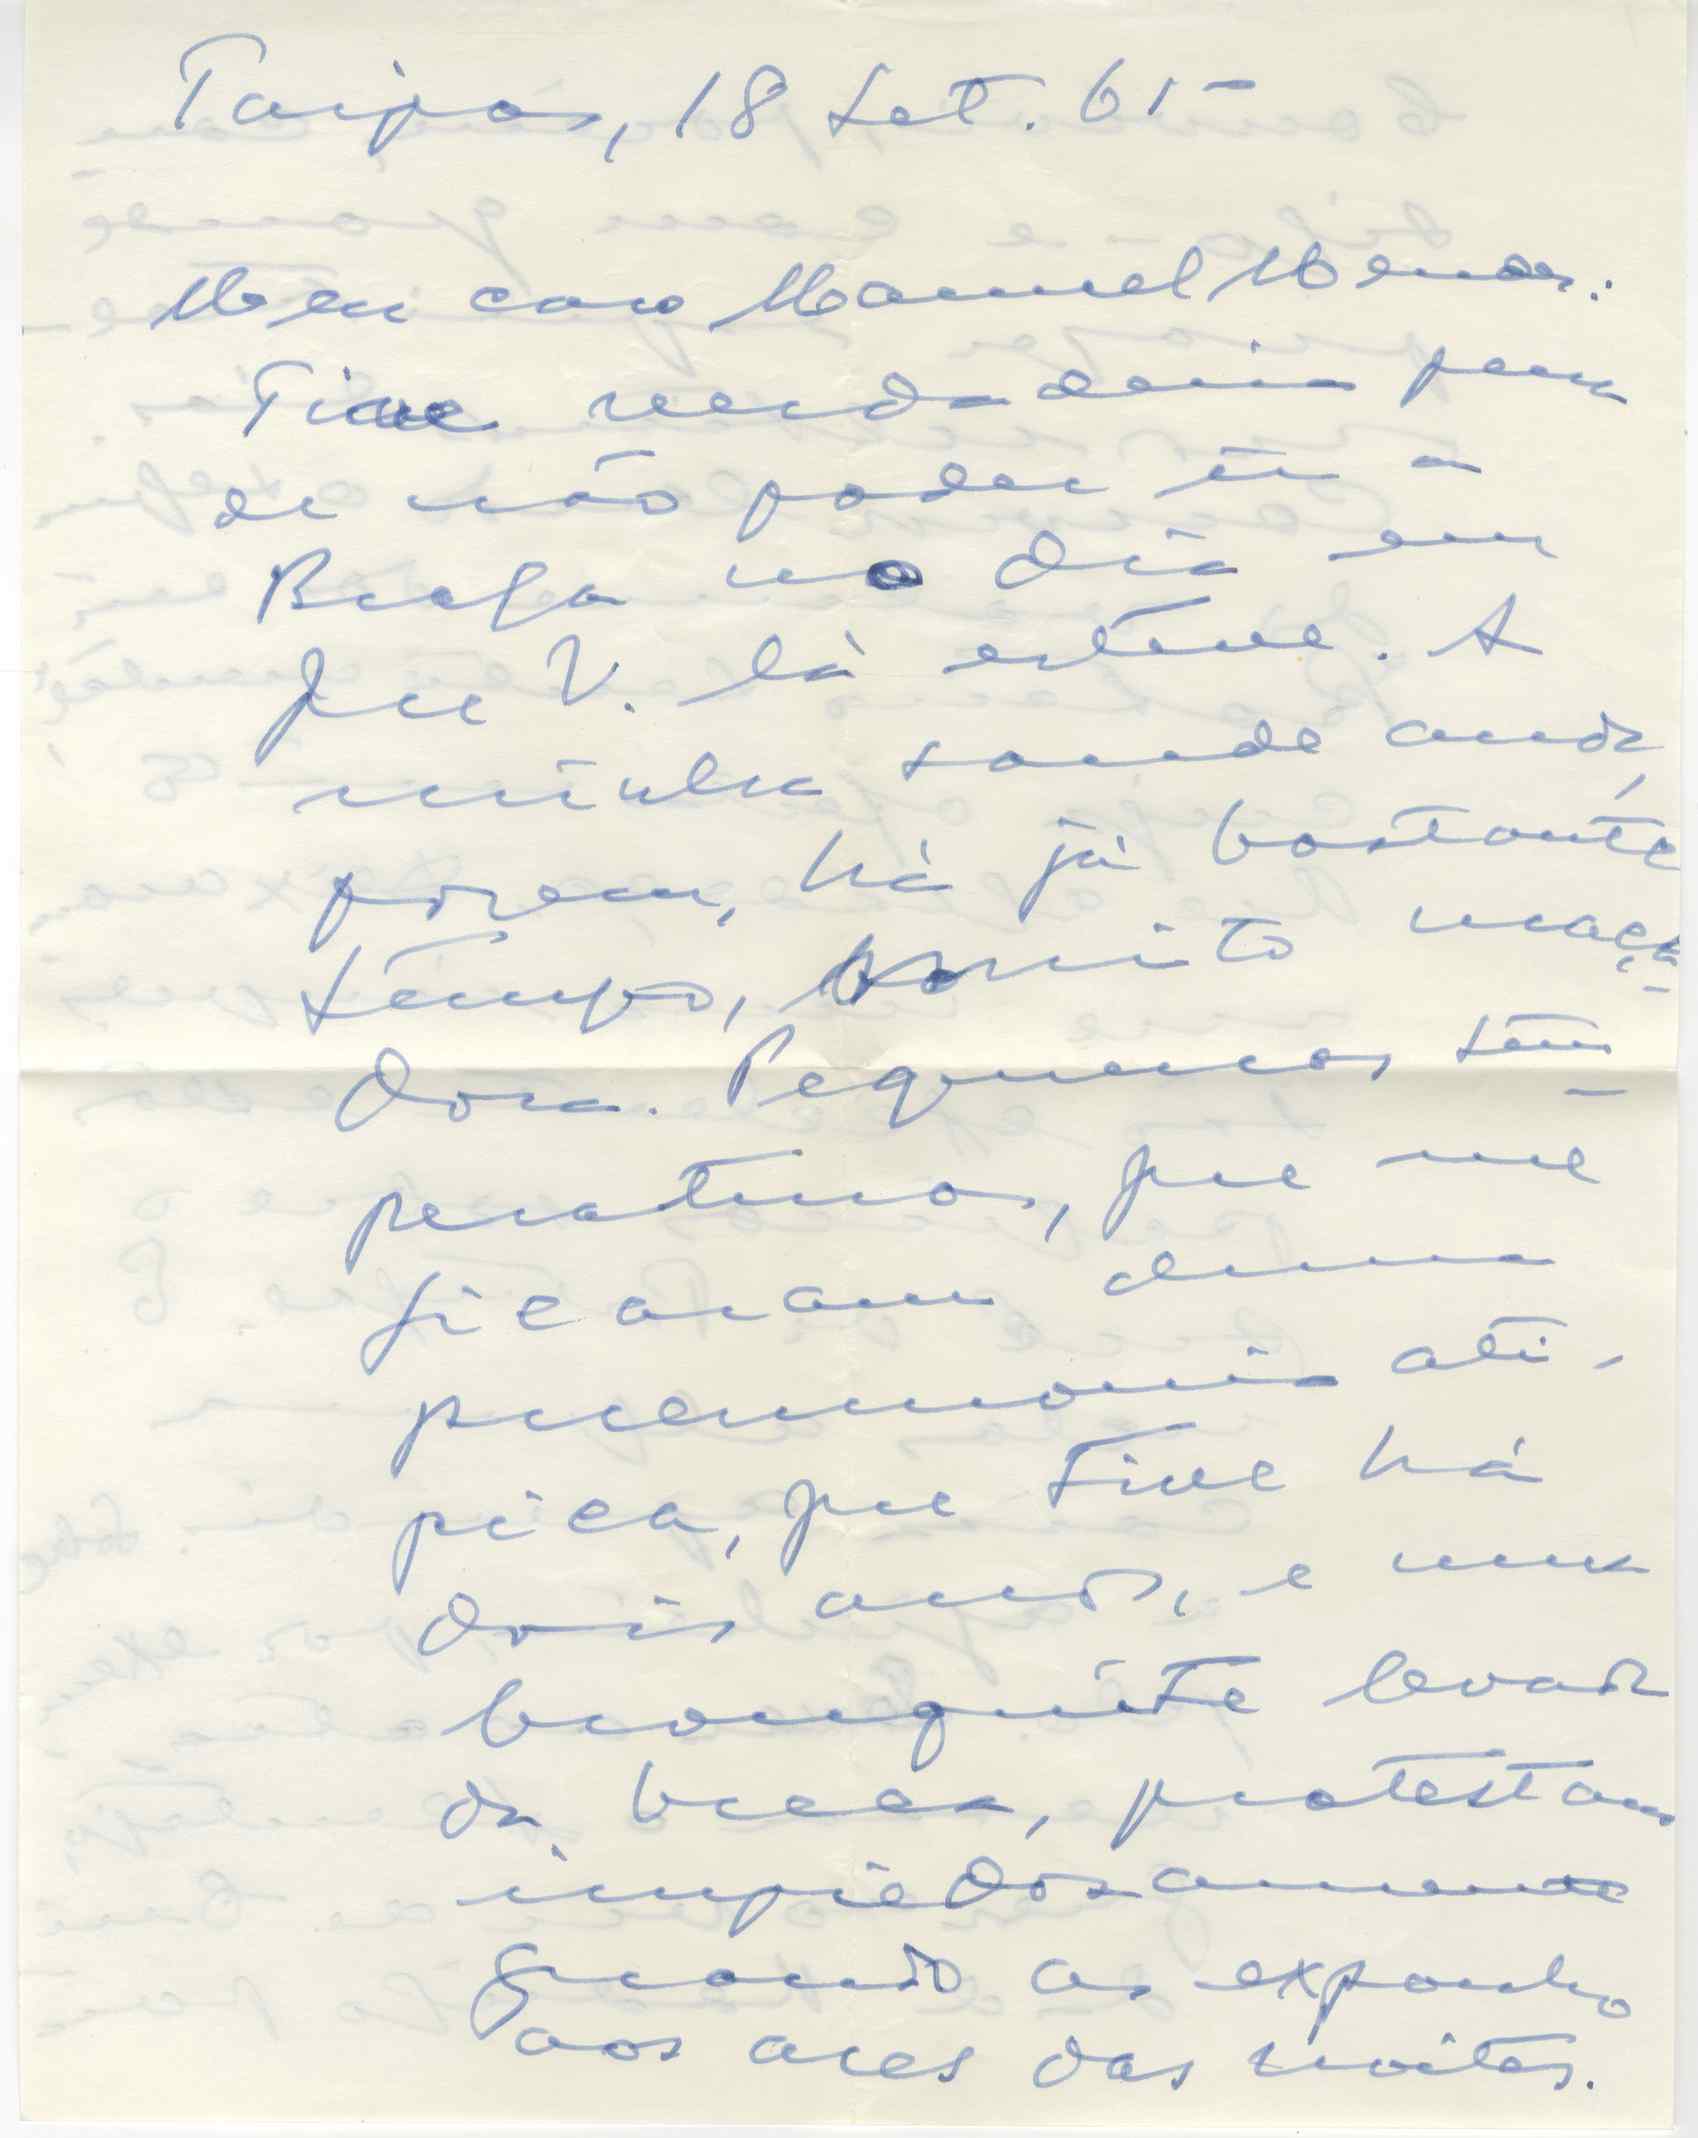 Taipas, 18 Set. 61-
Meu caro Manuel Mendes:
Tive verdadeira pena
de não poder ir a
Braga no dia em
que V. lá esteve. A
minha saude anda,
porem, há já bastante
tempo, muito maça-
dora. Pequenas sem-
pre ativas, que me
ficaram duma
pneumonia ati-
pica, que tive há
dois anos, e uma
bronquite levada
da breca, protestam
impiedosamente
quando as exponho
aos ares das noites.